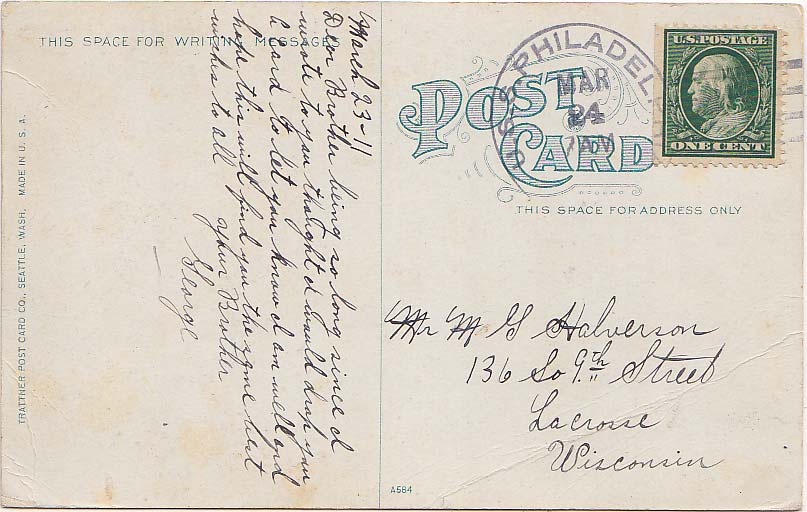 THIS SPACE FOR WRITING MESSAGES
March 23-11
Dear Brother being so long since I
wrote to you thought I would drop you
a card to let you know I am well and
hope this will find you the same best
wishes to all your Brother
George
TRATTNER POST CARD CO., SEATTLE, WASH. MADE IN U. S. A.
POST
CARD
U.S.S. PHILADEL
MAR
24
7 AM
U.S. POSTAGE
ONE CENT
THIS SPACE FOR ADDRESS ONLY
Mr M G Halverson
136 So 9th Street
Lacrosse
Wisconsin
A584